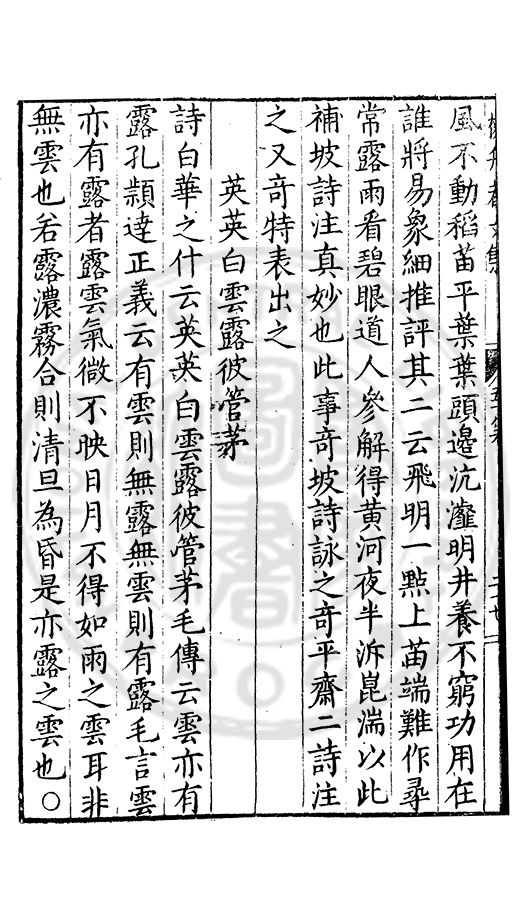 風不動稻苗平葉葉頭邊沆瀣明井養不窮功用在
誰將易象細推評其二云飛明一點上苗端難作尋
常露雨看碧眼道人參解得黃河夜半泝崑湍以此
補坡詩注真妙也此事竒坡詩詠之竒平齋二詩注
之又竒特表出之
英英白雲露彼管茅
詩白華之什云英英白雲露彼管茅毛傳云雲亦有
露孔頴達正義云有雲則無露無雲則有露毛言雲
亦有露者露雲氣微不映日月不得如雨之雲耳非
無雲也若露濃霧合則清旦為昏是亦露之雲也○